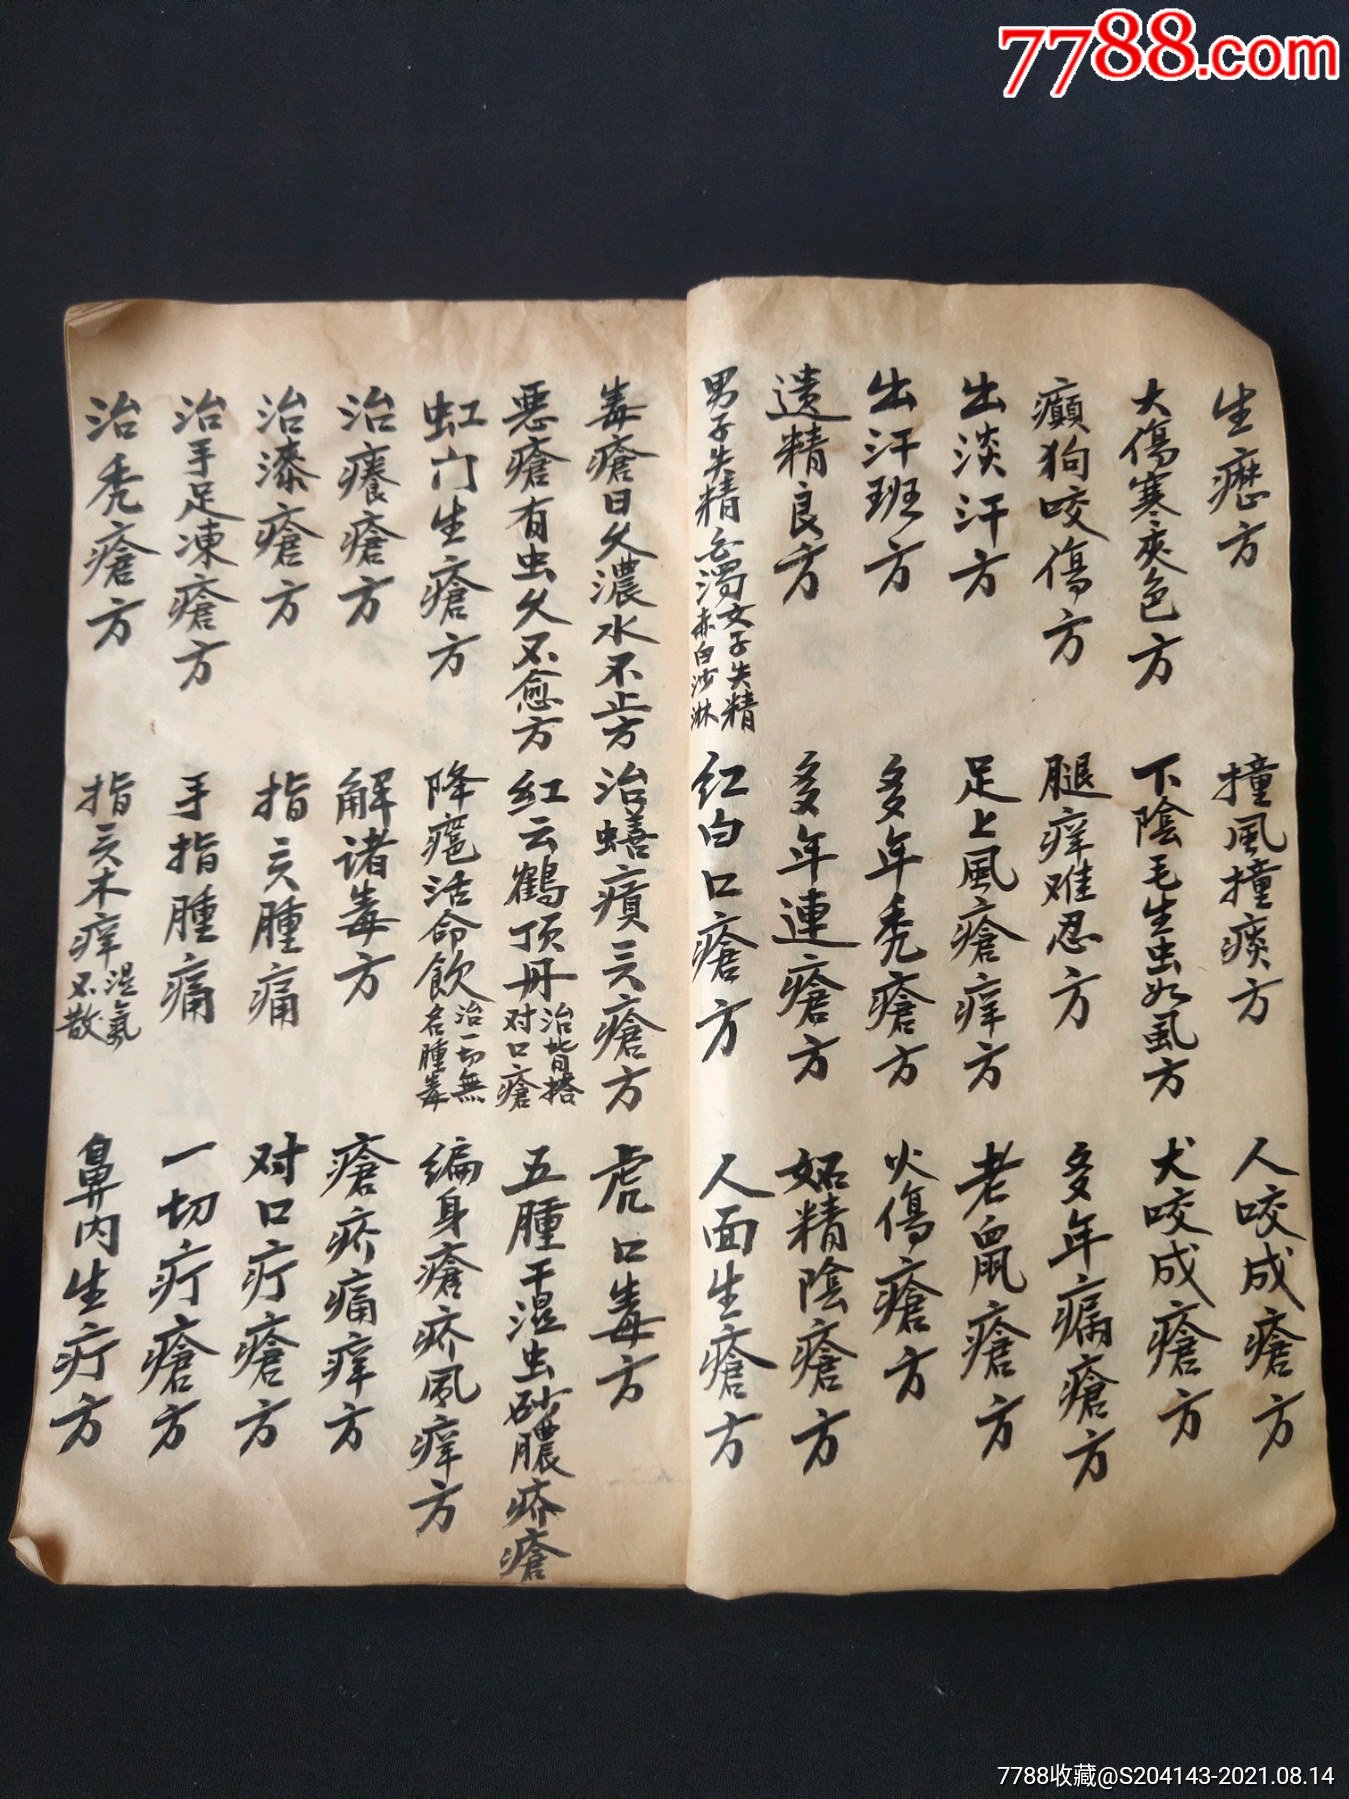 7788.com
生癧方
撞風撞痰方
人咬成瘡方
大傷寒夾色方
下陰毛生虫如虱方
犬咬成瘡方
癲狗咬傷方
腿痒难忍方
多年瘺瘡方
出淡汗方
足上風瘡痒方
老鼠瘡方
出汗班方
多年秃瘡方
火傷瘡方
遗精良方
多年連瘡方
妬精陰瘡方
男子失精 濁 女子失精 赤白沙淋
红白口瘡方
人面生瘡方
毒瘡日久濃水不止方
治蟮瘨三瘡方
虎口毒方
惡瘡有虫久不愈方
红云鶴顶丹 治背搭 对口瘡
五腫干湿虫砂膿疥瘡
虹门生瘡方
降 活命飲 治一切無 名腫毒
编身瘡疥風痒方
治瘡方
解诸毒方
瘡疥痛痒方
治漆瘡方
指 腫痛
对口疔瘡方
治手足凍瘡方
手指腫痛
一切疔瘡方
治秃瘡方
指 木痒 湿氣 不散
鼻内生疔方
7788收藏@S204143-2021.08.14